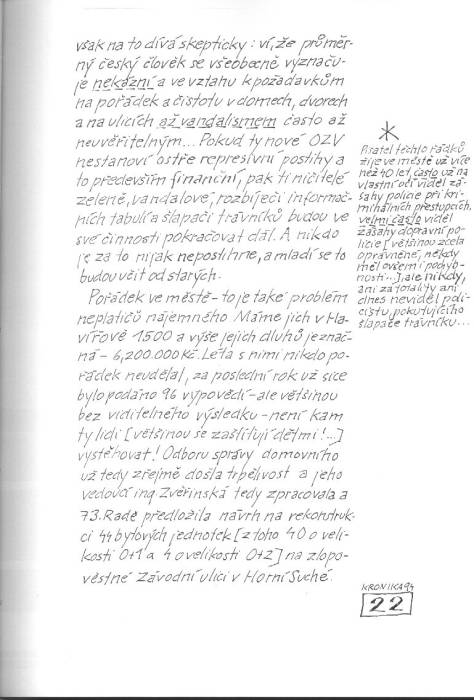 však na to dívá skepticky: ví, že průměr-
ný český člověk se všeobecně vyznaču-
je nekázní a ve vztahu k požadavkům
na pořádek a čistotu v domech, dvorech
a na ulicích až vandalismem často až
neuvěřitelným... Pokud ty nové OZV
nestanoví ostře represívní postihy a
to především finanční, pak ti ničitelé
zeleně, vandalové, rozbíječi informač-
ních tabulí a šlapači trávníků budou ve
své činnosti pokračovat dál. A nikdo
je za to nijak nepostihne, a mladí se to
budou učit od starých.
Pořádek ve městě - to je také problém
neplatičů nájemného. Máme jich v Ha-
vířově 1500 a výše jejich dluhů je znač-
ná - 6,200.000 Kč. Léta s nimi nikdo po-
řádek neudělal, za poslední rok už sice
bylo podáno 96 výpovědí - ale většinou
bez viditelného výsledku - není kam
ty lidi [většinou se zaštiťují dětmi!...]
vystěhovat! Odboru správy domovního
už tedy zřejmě došla trpělivost a jeho
vedoucí ing Zvěřinská tedy zpracovala a
73. Radě předložila návrh na rekonstruk-
ci 44 bytových jednotek [z toho 40 o veli-
kosti 0+1 a 4 o velikosti 0+2] na zlopo-
věstné Závodní ulici v Horní Suché.
*
Pisatel těchto řádků
žije ve městě už více
než 40 let, často už na
vlastní oči viděl zá-
sahy policie při kri-
minálních přestupcích,
velmi často viděl
zásahy dopravní po-
licie [většinou zcela
oprávněné, někdy
měl ovšem i pochyb-
nosti...], ale nikdy,
ani za totality ani
dnes neviděl poli-
cistu, pokutujícího
šlapače trávníku...
KRONIKA 94
22